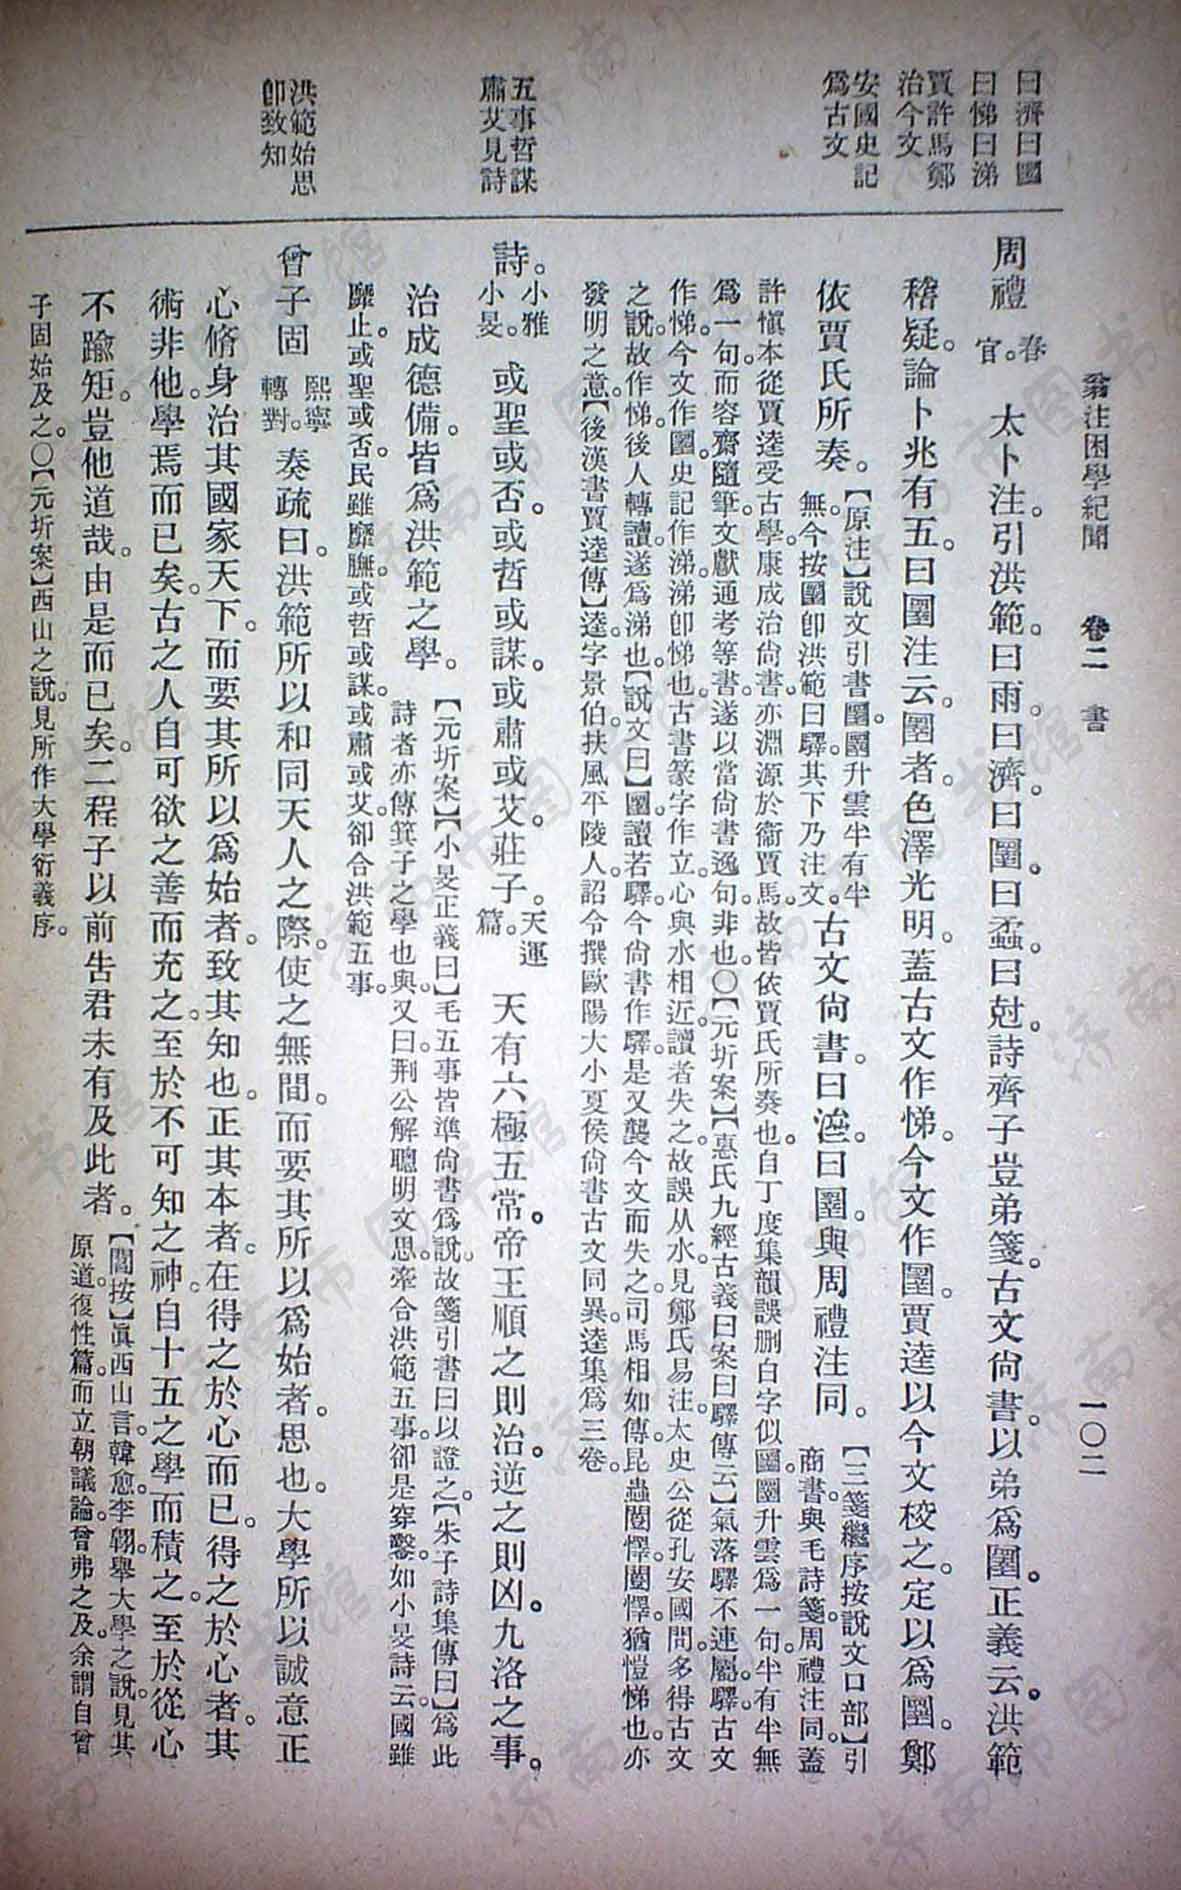 翁注困學紀聞　卷二　書　一〇二
曰濟曰圛
曰悌曰涕
賈許馬鄭
治今文
安國史記
爲古文
五事哲謀
肅艾見詩
洪範始思
卽致知
周禮春官。太卜注。引洪範。曰雨。曰濟。曰圛。曰蟊。曰尅。詩齊子豈弟箋。古文尙書。以弟爲圛。正義云。洪範
稽疑。論卜兆有五。曰圛注云。圛者。色澤光明。蓋古文作悌。今文作圛。賈逵以今文校之。定以爲圛。鄭
依賈氏所奏。【原注】說文引書圛。圛升雲半有半
無。今按圛卽洪範曰驛。其下乃注文。古文尙書。曰𣵀。曰圛。與周禮注同。【三箋繼序按說文口部】引
商書。與毛詩箋。周禮注同。蓋
許愼本從賈逵受古學。康成治尙書。亦淵源於衞賈馬。故皆依賈氏所奏也。自丁度集韻誤删白字似圛。圛升雲爲一句。半有半無
爲一句。而容齋隨筆。文獻通考等書。遂以當尙書逸句。非也。〇【元圻案】【惠氏九經古義曰案曰驛傳云】氣落驛不連屬。驛。古文
作悌。今文作圛。史記作涕。涕卽悌也。古書篆字作立心與水相近。讀者失之。故誤从水。見鄭氏易注。太史公從孔安國問。多得古文
之說。故作悌。後人轉讀。遂爲涕也。【說文曰】圛讀若驛。今尙書作驛。是又襲今文而失之。司馬相如傳。昆蟲闓懌。闓懌。猶愷悌也。亦
發明之意。【後漢書賈逵傳】逵。字景伯。扶風平陵人。詔令撰歐陽大小夏侯尙書古文同異。逵集爲三卷。
詩。小雅小旻。或聖或否。或哲或謀。或肅或艾。莊子。天運篇。天有六極五常。帝王順之則治。逆之則凶。九洛之事。
治成德備。皆爲洪範之學。【元圻案】【小旻正義曰】毛五事皆準尙書爲說。故箋引書曰以證之。【朱子詩集傳曰】爲此
詩者亦傳箕子之學也與。又曰。荆公解聰明文思。牽合洪範五事。卻是穿鑿。如小旻詩云。國雖
靡止。或聖或否。民雖靡膴。或哲或謀。或肅或艾。卻合洪範五事。
曾子固熙寧轉對。奏疏曰。洪範所以和同天人之際。使之無間。而要其所以爲始者。思也。大學所以誠意正
心脩身治其國家天下。而要其所以爲始者。致其知也。正其本者。在得之於心而已。得之於心者。其
術非他。學焉而已矣。古之人自可欲之善而充之。至於不可知之神。自十五之學而積之。至於從心
不踰矩。豈他道哉。由是而已矣。二程子以前告君未有及此者。【閻按】眞西山言。韓愈。李翺。舉大學之說。見其
原道。復性篇。而立朝議論。曾弗之及。余謂自曾
子固始及之。〇【元圻案】西山之說。見所作大學衍義序。